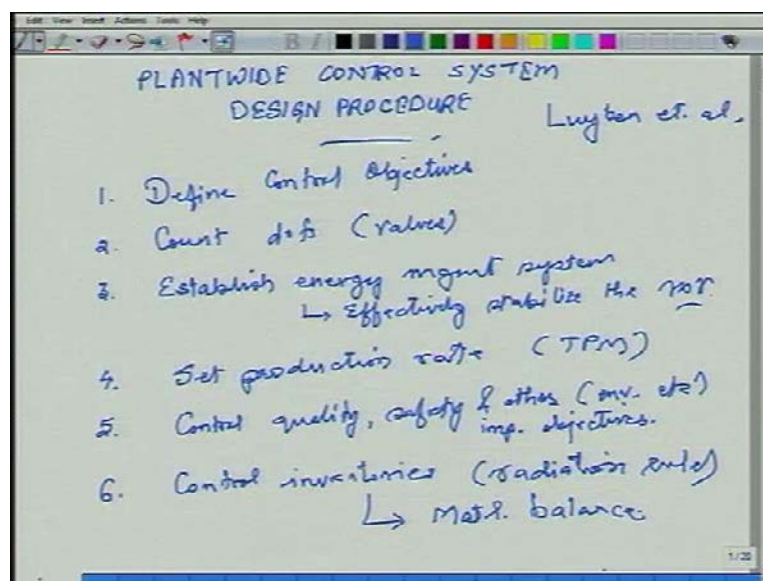 Edit View Insert Actions Tools Help
PLANTWIDE CONTROL SYSTEM
DESIGN PROCEDURE
Luyben et. al.
1. Define Control Objectives
2. Count dofs (valves)
3. Establish energy mgmt system
↳ Effectively stabilize the rxr.
4. Set production rate (TPM)
5. Control quality, safety & other (env. etc)
imp. objectives.
6. Control inventories (radiation rule)
↳ Matl. balance.
1/20